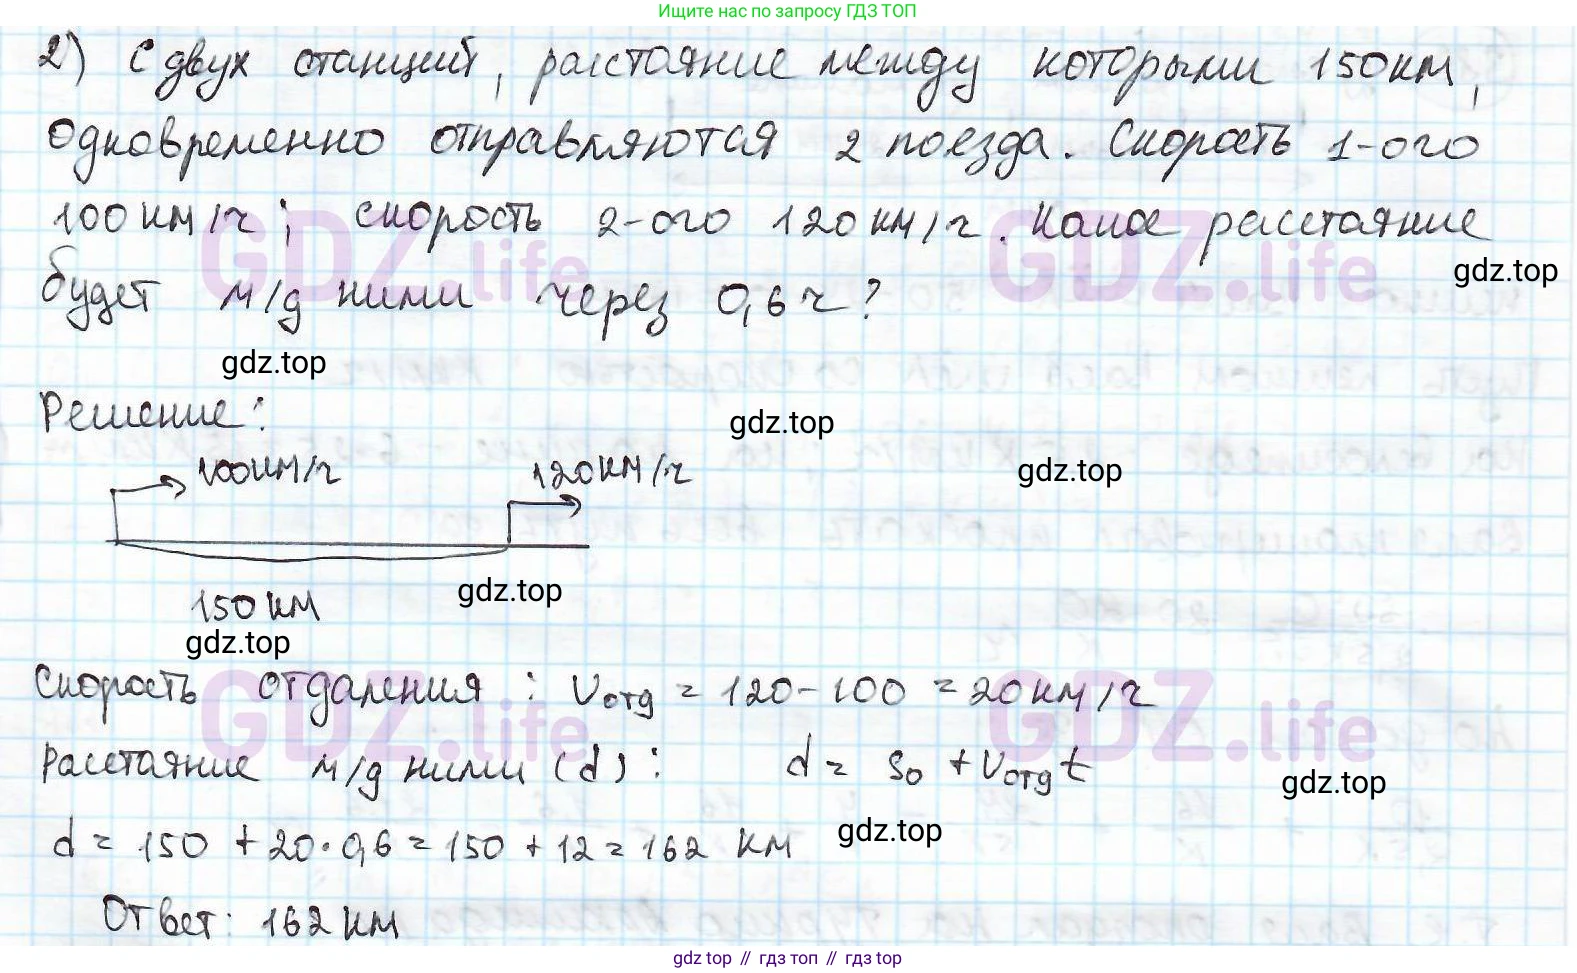 Ищите нас по запросу ГДЗ ТОП
2) С двух станций, расстояние между которыми 150км,
одновременно отправляются 2 поезда. Скорость 1-ого
100км/ч; скорость 2-ого 120км/ч. Какое расстояние
gdz.top
будет м/д ними через 0,6ч?
gdz.top
Решение:
gdz.top
100км/ч 120км/ч
gdz.top
150км
gdz.top
gdz.top
Скорость отдаления: Vотд = 120-100 = 20км/ч
GDZ.life GDZ.life
GDZ.life GDZ.life
Расстояние м/д ними (d): d = S₀ + Vотд t
gdz.top
d = 150 + 20·0,6 = 150 + 12 = 162 км
gdz.top
Ответ: 162км
gdz top // гдз топ // гдз top